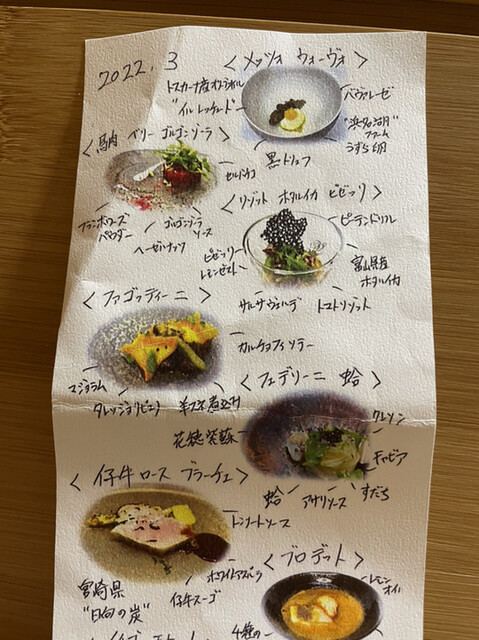 2022. 3
< メッツォ ウォーヴォ >
トスカーナ産オリーブオイル
"イル レッチェート"
バヴァレーゼ
"浜名湖"
ファーム
うずら卵
黒トリュフ
< 馬肉 ベリー ゴルゴンゾーラ >
セルバチコ
フランボワーズ
パウダー
ゴルゴンゾーラ
ソース
ヘーゼルナッツ
< リゾット ホタルイカ ピゼッリ >
ピゼッリ
レモンゼスト
サルサヴェルデ
トマトリゾット
富山県産
ホタルイカ
< ファゴッティーニ >
カルチョフィソテー
マジョラム
タレッジョリピエノ
羊スネ煮込み
< フェデリーニ 蛤 >
クレソン
花穂紫蘇
キャビア
蛤
アサリソース
すだち
< 仔牛ロース ブラーチェ >
トンナートソース
ホワイトアスパラ
仔牛スーゴ
宮崎県
"日向の炭"
< ブロデット >
レモン
オイル
4種の